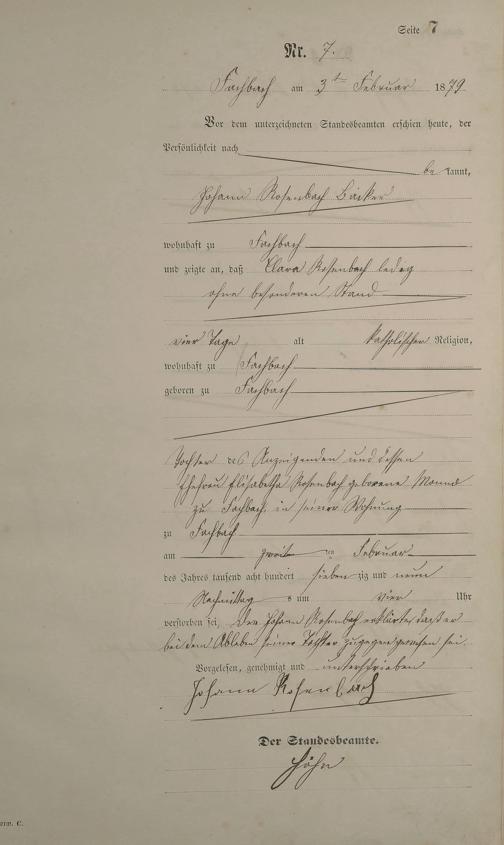 Seite 7
Nr. 7.
Fachbach am 3ten Februar 1879.
Vor dem unterzeichneten Standesbeamten erschien heute, der
Persönlichkeit nach
be kannt,
Johann Rosenbach Bäcker
wohnhaft zu Fachbach
und zeigte an, daß Clara Rosenbach ledig
ohne besonderen Stand
vier Tage alt katholischer Religion,
wohnhaft zu Fachbach
geboren zu Fachbach
Tochter des Anzeigenden und dessen
Ehefrau Elisabetha Rosenbach geborene
zu Fachbach, in seiner Wohnung
zu Fachbach
am zweiten Februar
des Jahres tausend acht hundert sieben zig und neun
Nachmittag s um vier Uhr
verstorben sei, Der Johann Rosenbach erklärte, daß er
bei dem Ableben seiner Tochter zugegen gewesen sei.
Vorgelesen, genehmigt und unterschrieben
Johann Rosenbach
Der Standesbeamte.
Höhn
C.